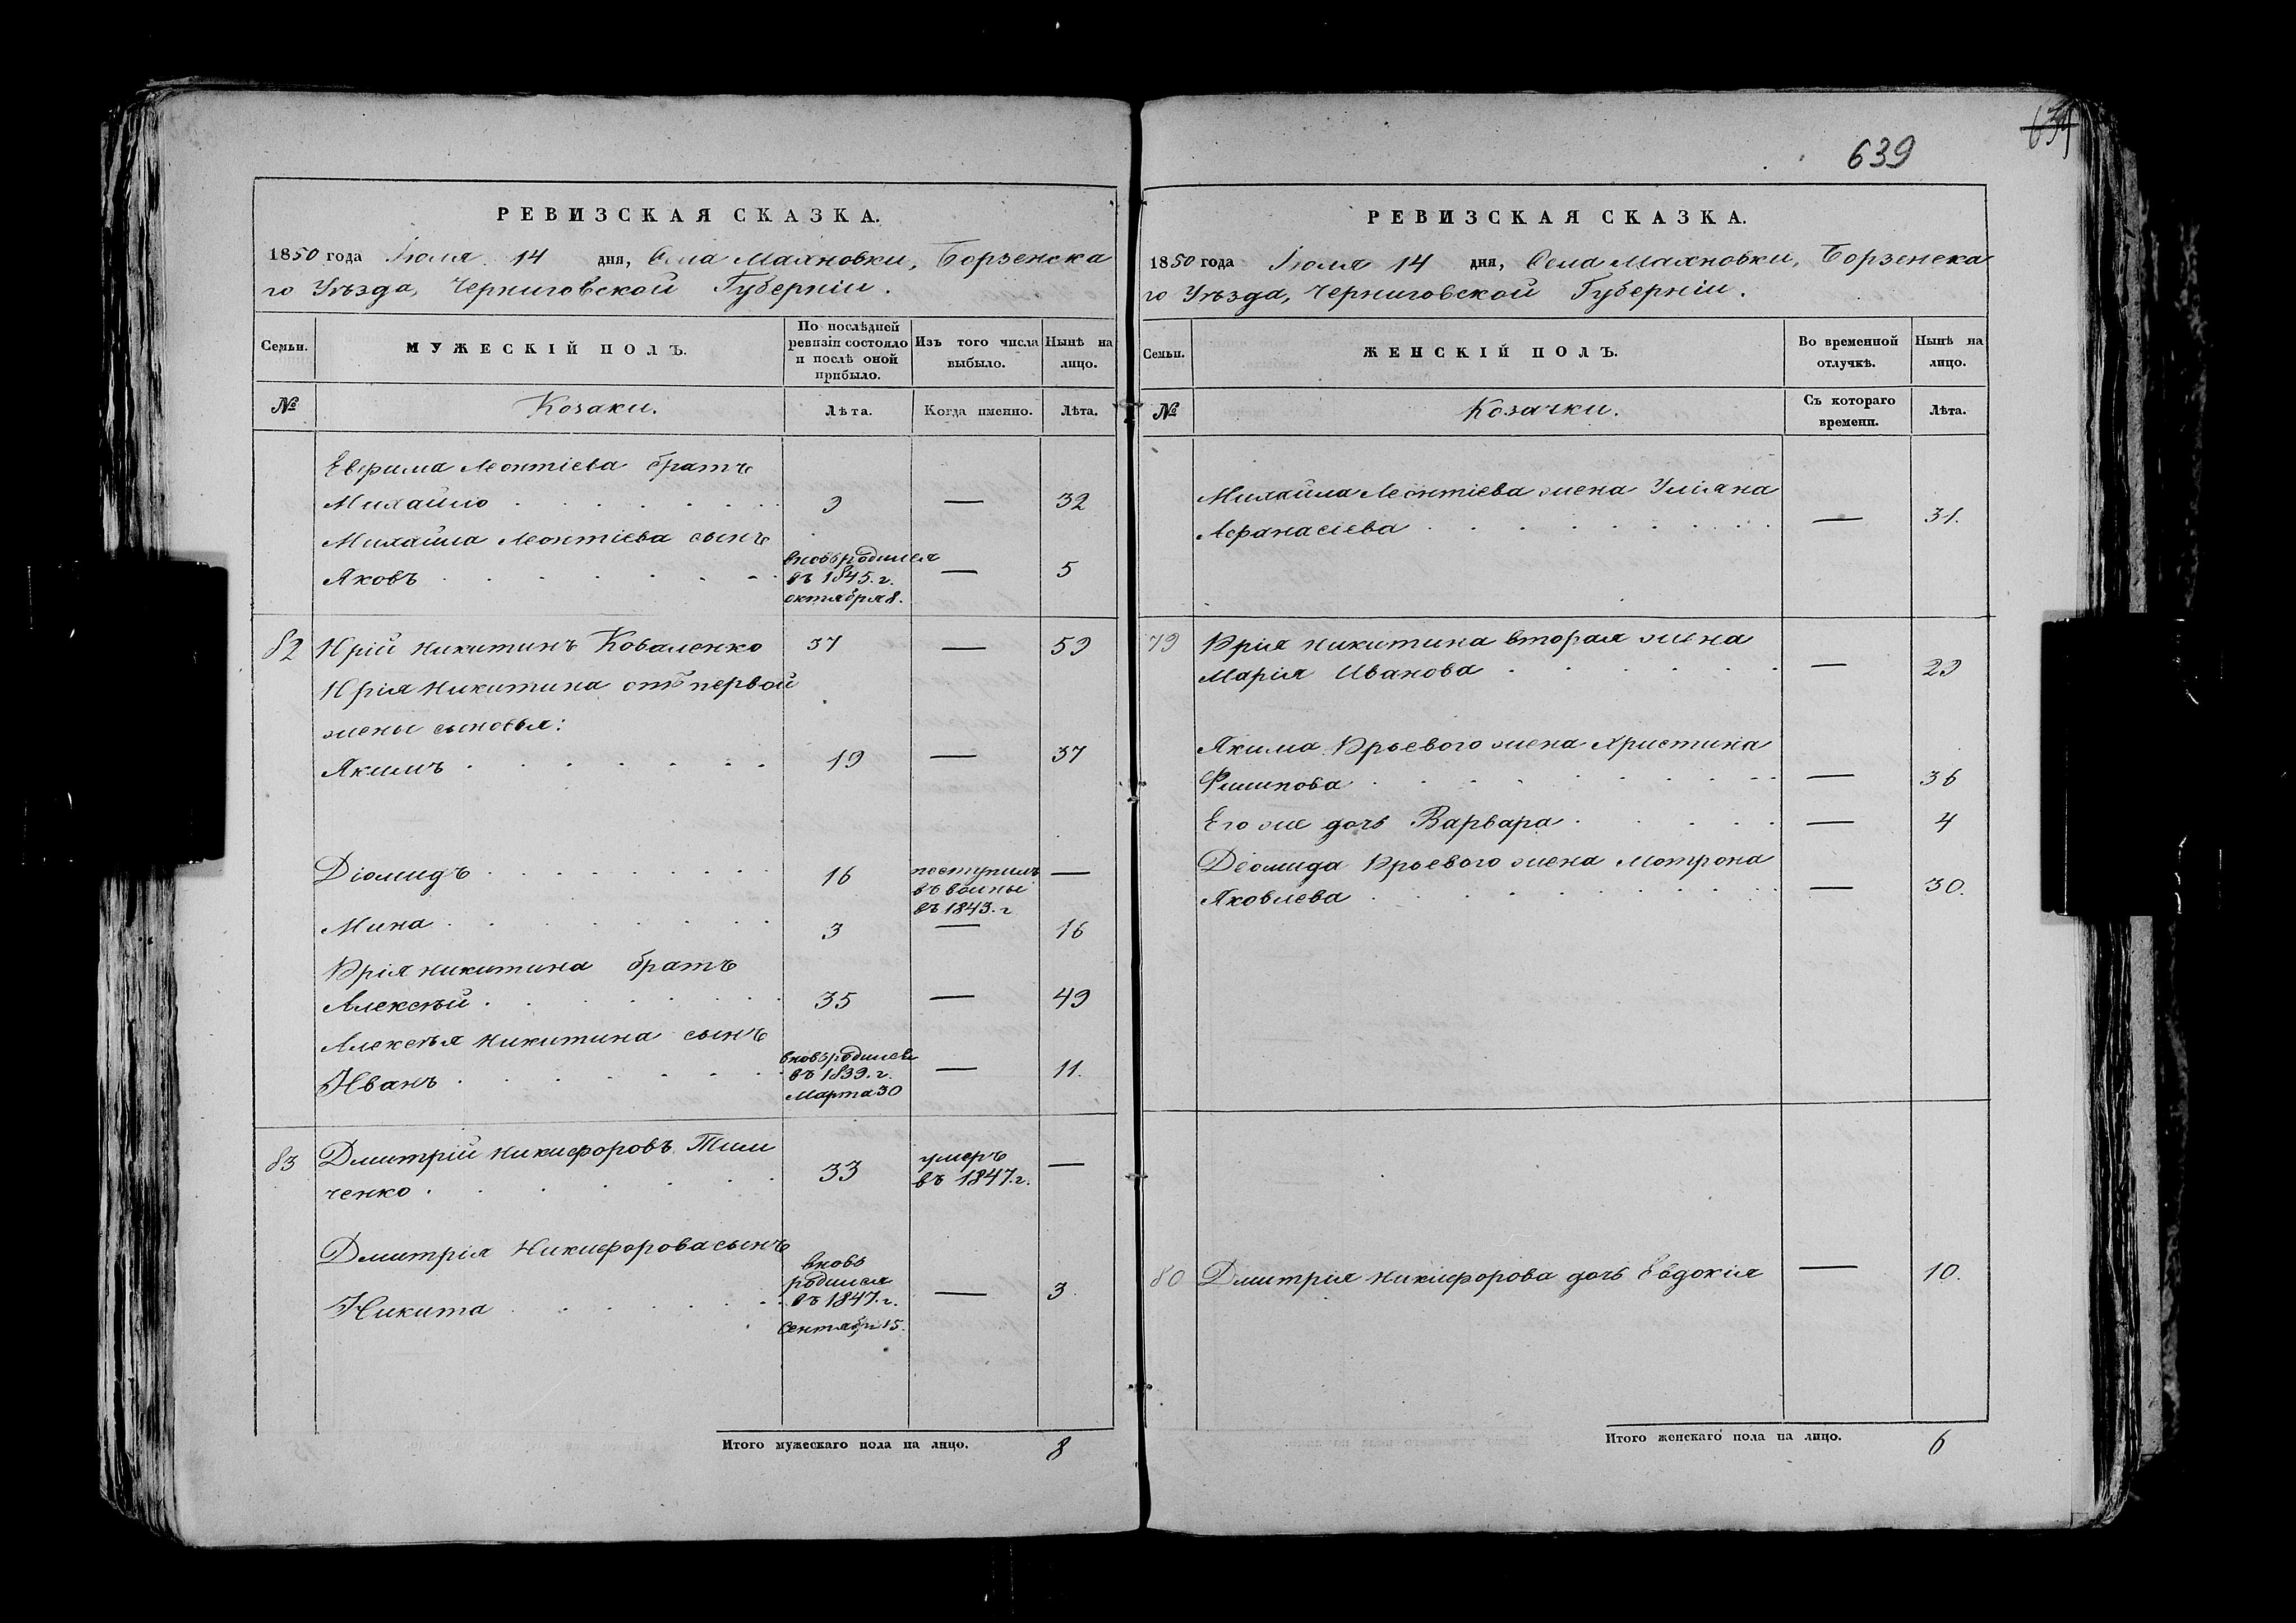 639
639
РЕВИЗСКАЯ СКАЗКА.
1850 года Іюля 14 дня, Села Махновки, Борзенска
го Уѣзда, Черниговской Губерніи.
Семьи.
МУЖЕСКІЙ ПОЛЪ.
По послѣдней
ревизіи состояло
и послѣ оной
прибыло.
Изъ того числа
выбыло.
Нынѣ на
лицо.
№
Козаки.
Лѣта.
Когда именно.
Лѣта.
Евфима Леонтіева братъ
Михайло 9 — 32
Михайла Леонтіева сынъ
Яковъ
вновь родился
въ 1845. г.
октября 8.
— 5
82 Юрій Никитинъ Коваленко 37 — 59
Юрія Никитина отъ первой
жены сыновья:
Якимъ 19 — 37
Діомидъ 16
поступилъ
въ воины
въ 1843. г
—
Мина 3 — 16
Юрія Никитина братъ
Алексѣй 35 — 49
Алексѣя Никитина сынъ
Иванъ
вновь родился
въ 1839. г.
Марта 30
— 11.
83 Дмитрій Никифоровъ Тим
ченко 33
умеръ
въ 1847. г.
—
Дмитрія Никифорова сынъ
Никита
вновь
родился
въ 1847. г.
Сентября 15.
— 3.
Итого мужескаго пола на лицо. 8
РЕВИЗСКАЯ СКАЗКА.
1850 года Іюля 14 дня, Села Махновки, Борзенска
го Уѣзда, Черниговской Губерніи.
Семьи.
ЖЕНСКІЙ ПОЛЪ.
Во временной
отлучкѣ.
Нынѣ на
лицо.
№
Козачки.
Съ котораго
времени.
Лѣта.
Михайла Леонтіева жена Уліяна
Афанасіева — 31.
79 Юрія Никитина вторая жена
Марія Иванова — 29
Якима Юрьевого жена Христина
Филипова — 36
Его же дочь Варвара — 4
Діомида Юрьевого жена Мотрона
Яковлева — 30.
80 Дмитрія Никифорова дочь Евдокія — 10.
Итого женскаго пола на лицо. 6